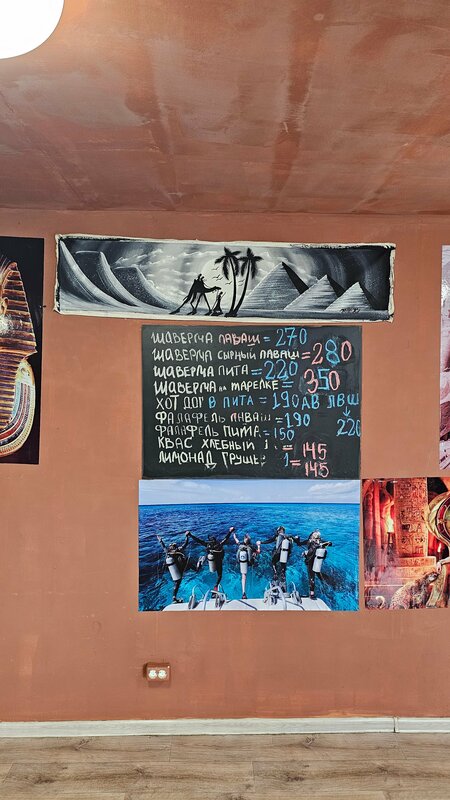 ШАВЕРМА ЛАВАШ = 270
ШАВЕРМА СЫРНЫЙ ЛАВАШ = 280
ШАВЕРМА ПИТА = 220
ШАВЕРМА НА ТАРЕЛКЕ = 350
ХОТ ДОГ В ПИТА = 190 ЛВШ ↓ 220
ФАЛАФЕЛЬ ЛАВАШ = 190
ФАЛАФЕЛЬ ПИТА = 150
КВАС ХЛЕБНЫЙ = 145
ЛИМОНАД ГРУШЕВ = 145